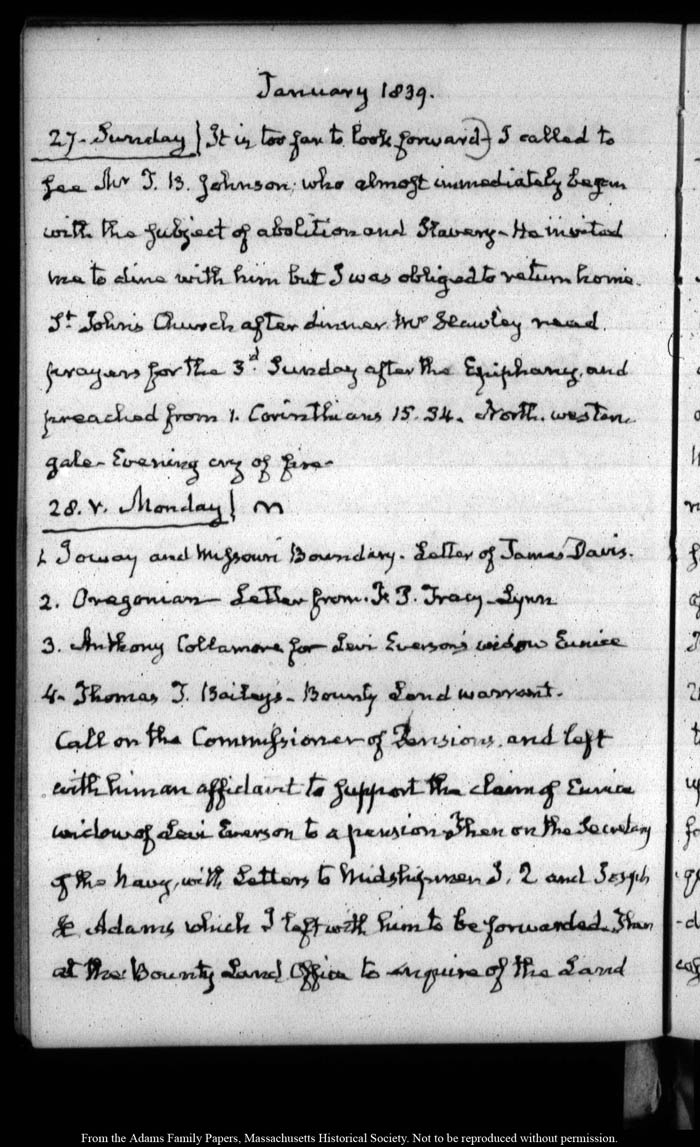 January 1839.
27. Sunday} It is too far to look forward) I called to
see Mr T. B. Johnson; who almost immediately began
with the subject of abolition and Slavery - He invited
me to dine with him but I was obliged to return home.
St. John's Church after dinner. Mr Hawley read
prayers for the 3d. Sunday after the Epiphany, and
preached from 1. Corinthians 15. 34. North. western
gale - Evening cry of fire -
28. V. Monday}
1. Ioway and Missouri Boundary. Letter of James Davis.
2. Oregonian - Letter from. F. P. Tracy - Lynn
3. Anthony Collamore for Levi Everson's widow Eunice
4. Thomas T. Bailey's - Bounty Land warrant.
Call on the Commissioner of Pensions, and left
with him an affidavit to support the claim of Eunice
widow of Levi Everson to a pension - Then on the Secretary
of the Navy, with Letters to Midshipmen J. 2 and Joseph
Adams which I left with him to be forwarded. Then
at the Bounty Land Office to enquire of the Land
From the Adams Family Papers, Massachusetts Historical Society. Not to be reproduced without permission.